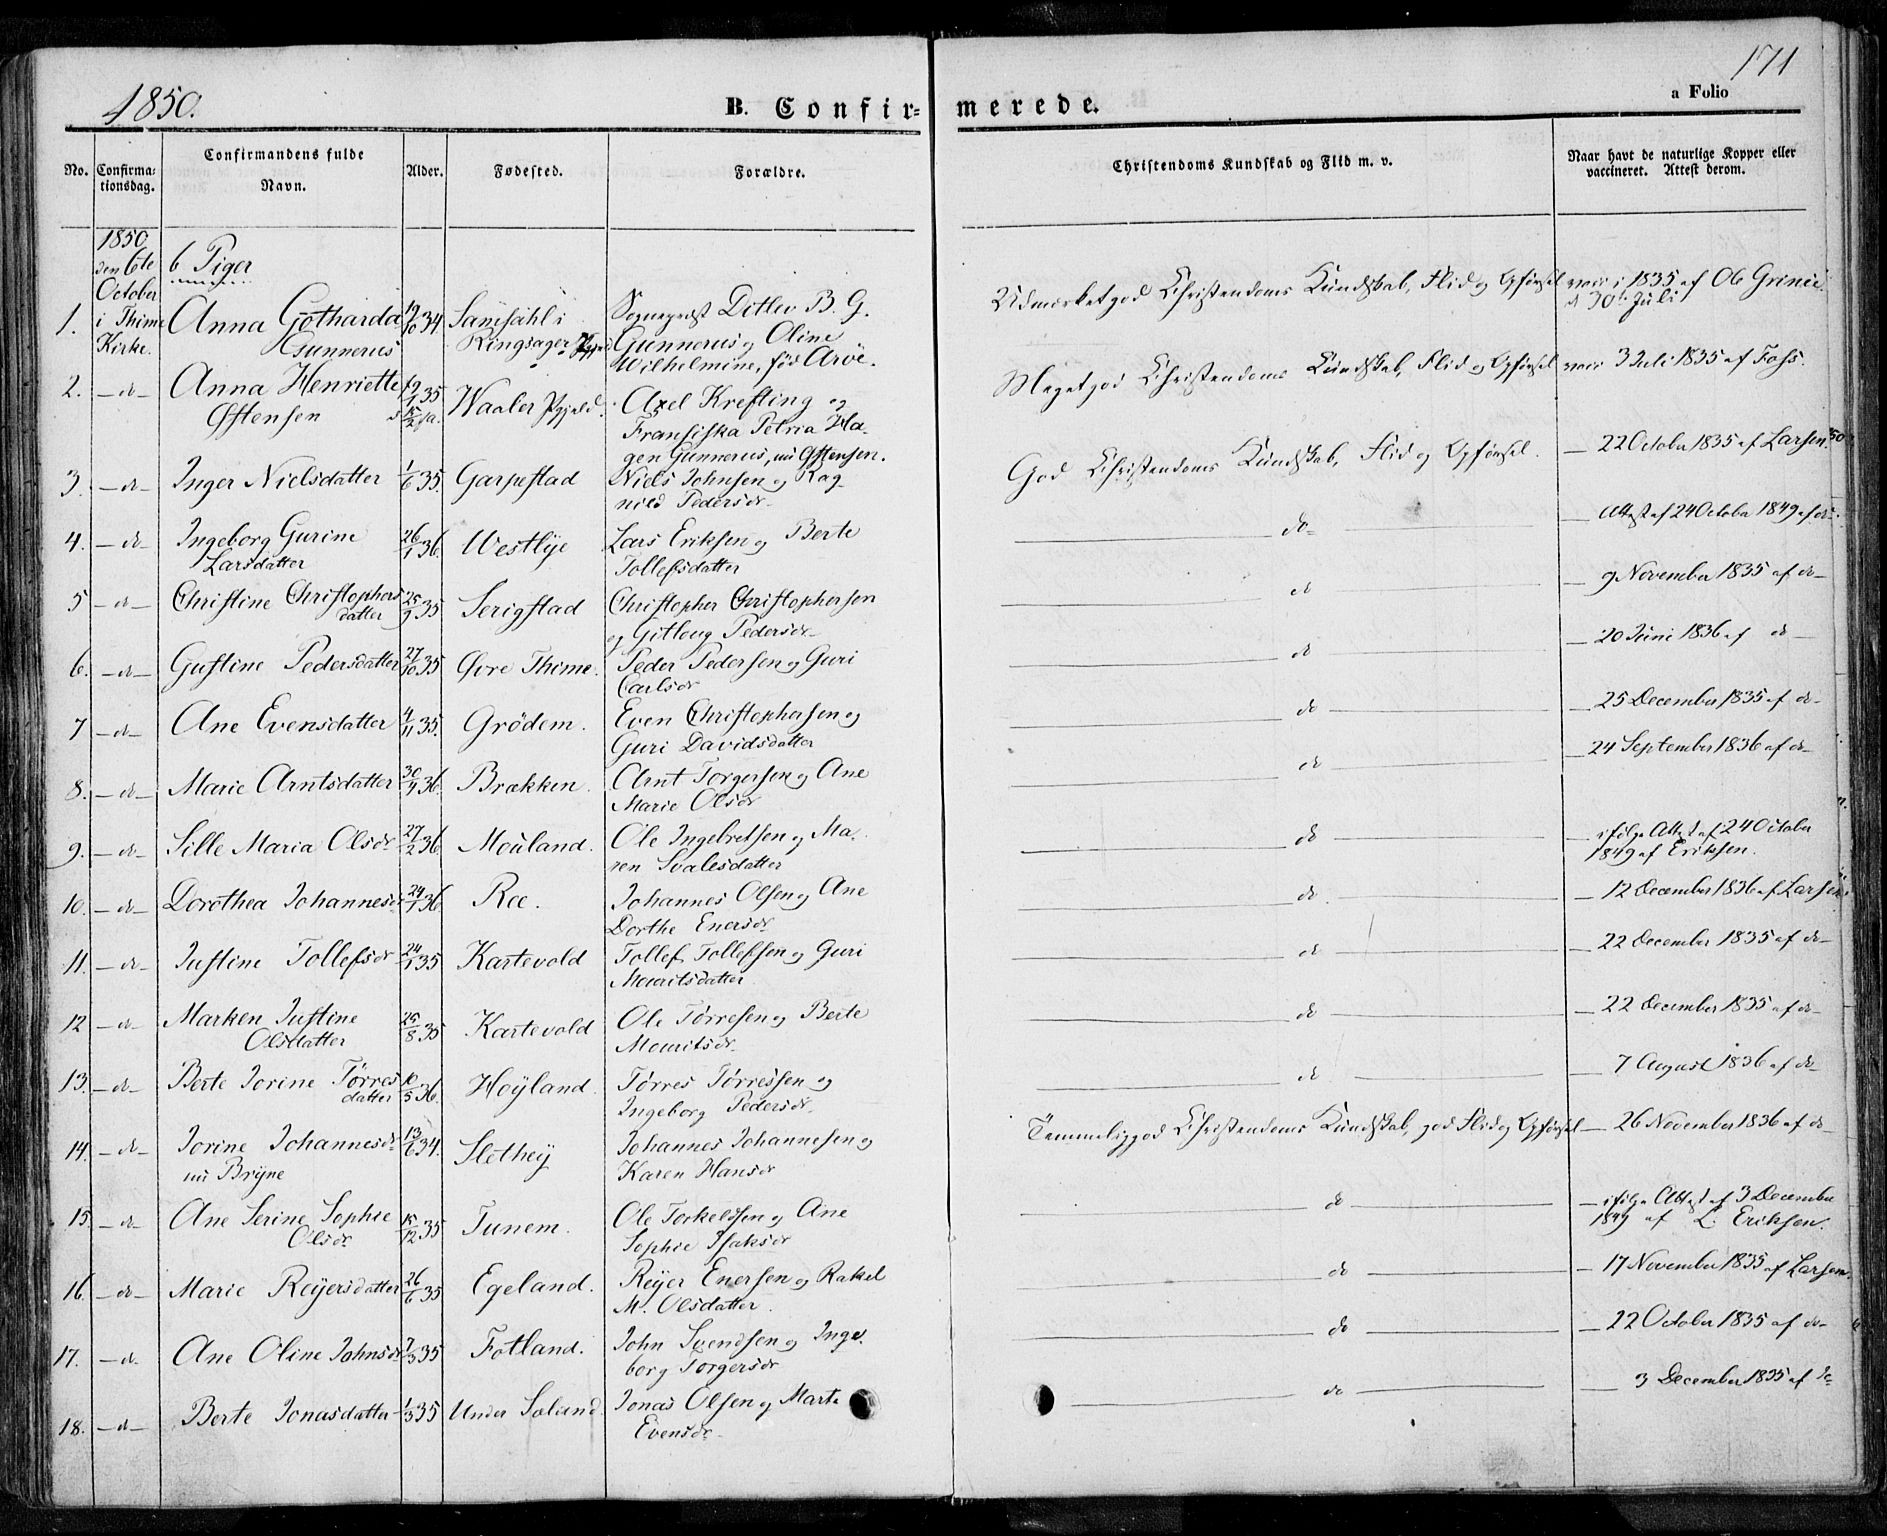 1850.
B. Confirmerede.
171
a Folio
No.
Confirmationsdag.
Confirmandens fulde Navn.
Alder.
Fødested.
Forældre.
Christendoms Kundskab og Flid m. v.
Naar havt de naturlige Kopper eller vaccineret. Attest derom.
1850 den 6te October i Thime Kirke.
6 Piger
1. Anna Gotharda Gunnerus 19/10 34. Samsahl i Ringsager Sognepræst Ditlev B. G. Gunnerus og Oline Wilhelmine, fød Arøe. Udmerket god Christendoms Kundskab, Flid og Opførsel vacc i 1835 af d 30te Juli
2. -do- Anna Henriette Østensen 35 Waaler Pgjeld. Axel Krefting og Fransiska Petria Hagen Gunnerus, nu Østensen. Meget god Christendoms Kundskab, Flid og Opførsel vacc 3 Juli 1835 af
3. -do- Inger Nielsdatter 1/6 35. Garpestad Niels Johnsen og Ragnild Pedersdr God Christendoms Kundskab, Flid og Opførsel. — 22 October 1835 af Larsen
4. -do- Ingeborg Gurine Larsdatter 26/1 36. Westlye Lars Eriksen og Berte Tollefsdatter do — Attest af 24 October 1849 af
5 -do- Christine Christophersdatter 25/9 35 Serigstad Christopher Christophersen og Gitloug Pedersdr do — 9 November 1835 af do
6. -do- Gustine Pedersdatter 27/10 35 Øvre Thime. Peder Pedersen og Guri Carlsdr do — 20 Juni 1836 af do
7 -do- Ane Evensdatter 4/11 35. Grødem. Even Christophersen og Guri Davidsdatter do — 25 December 1835 af do
8. -do- Marie Arntsdatter 30/4 36. Brækken. Arnt Torgersen og Ane Marie Olsdr do — 24 September 1836 af do
9. -do- Sille Maria Olsdr 27/2 36. Mouland. Ole Ingebretsen og Maren Svalesdatter do — ifølge Attest af 24 October 1849 af Eriksen.
10. -do- Dorothea Johannesdr 24/1 36. Roe. Johannes Olsen og Ane Dorthe Enersdr do. — 12 December 1836 af Larsen
11. -do- Justine Tollefsdr 24/1 35 Kartevold Tollef Tollefsen og Guri Mouritsdatter do — 22 December 1835 af do
12 -do- Marken Justine Olsdatter 25/8 35 Kartevold Ole Tørresen og Berte Mouritsdr do — 22 December 1835 af do
13. -do- Berte Jorine Tørresdatter 10/5 36. Høyland Tørres Tørressen og Ingeborg Pedersdr. do — 7 August 1836 af do
14. -do- Jorine Johannesdr nu Bryne 13/6 34. Slethey Johannes Johannesen og Karen Hansdr Temmelig god Christendoms Kundskab, god Flid og Opførsel — 26 November 1836 af do
15. -do- Ane Serine Sophie Olsdr. 15/12 35 Tunem. Ole Torkelsen og Ane Sophie Isaksdr do — ifølge Attest af 3 December 1849 af L. Eriksen.
16. -do- Marie Reyersdatter 26/6 35 Egeland. Reyer Enersen og Rakel M. Olsdatter. do — 17 November 1835 af Larsen.
17. -do- Ane Oline Johnsdr 7/3 35 Fotland. John Svendsen og Ingeborg Torgersdr do — 22 October 1835 af do
18. -do- Berte Jonasdatter 1/3 35 Under Søland. Jonas Olsen og Marte Evensdr. do — 3 December 1835 af do